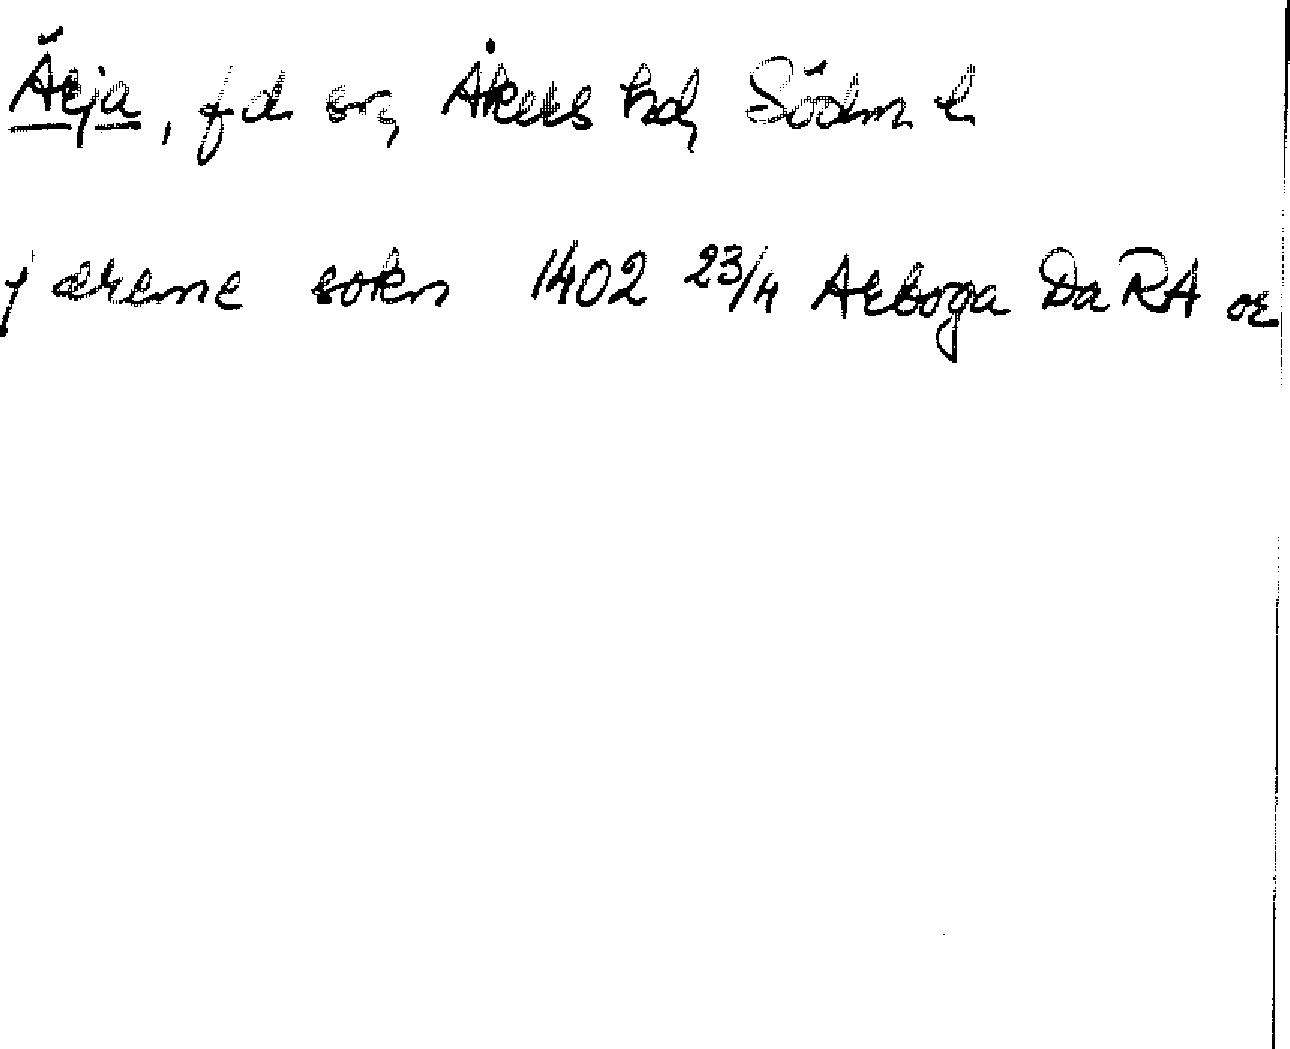 Ärja, fd sn, Åkers hd, Södm l
j ærerne sokn 1402 23/4 Arboga Da RA or